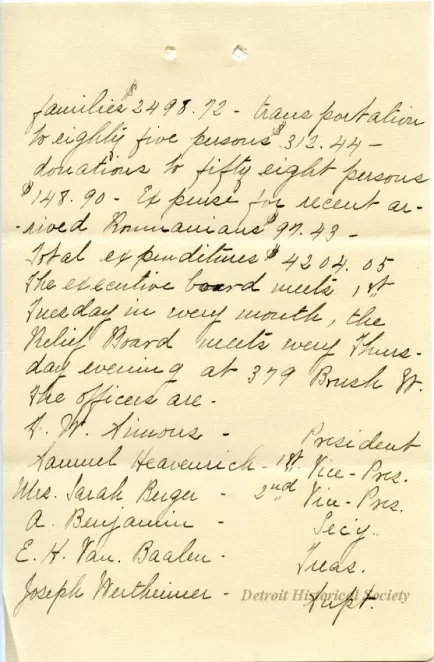 families $2498.72 - transportation
to eighty five persons $312.44 -
donations to fifty eight persons
$148.90 - Expense for recent ar-
-rived Roumanians $97.43 -
Total expenditures $4204.05
The executive board meets 1st
Tuesday in every month, the
Relief Board meets every Thurs-
day evening at 379 Brush St.
The officers are -
D. W. Simons - President
Samuel Heavenrich - 1st Vice-Pres.
Mrs. Sarah Berger - 2nd Vice-Pres.
A. Benjamin - Secy.
E. H. Van. Baalen - Treas.
Joseph Wertheimer - Supt.
Detroit Historical Society